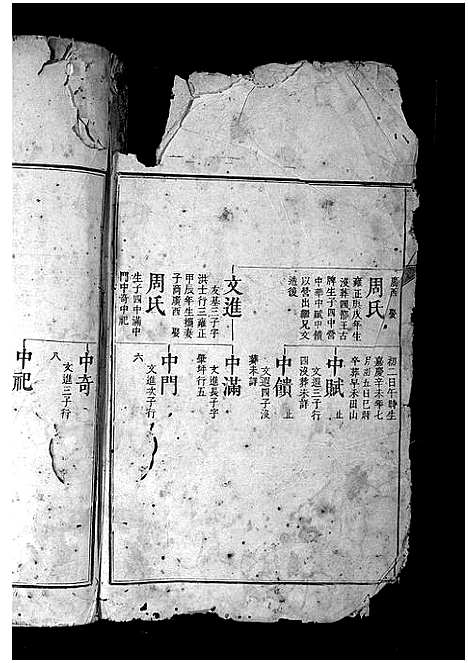 廣西 娶
周氏
雍正庚戌年生
沒葬四都王古
牌生子四中當
中華中賦中償
以營出繼兄文
造後
文進
友基三子字
洪士行三雍正
甲辰年生攜妻
子商廣西 娶
周氏
生子四中滿中
門中奇中祀
初二日午時生
嘉慶辛未年七
月初五日巳時
卒葬早禾田山
中賦
止
文遊三子行
四沒葬未詳
中償
止
文遊四子沒
葬未詳
中滿
文進長子字
肇坤行五
中門
文進次子行
六
中奇
文進三子行
八
中祀